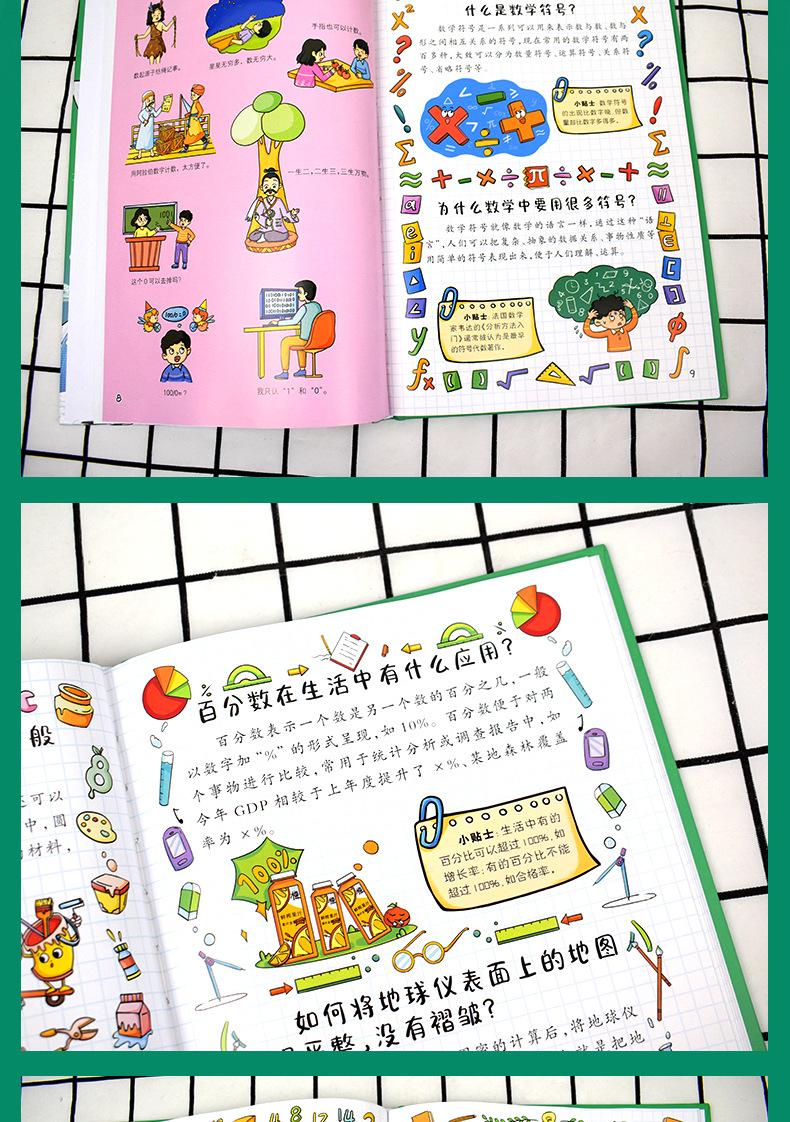 手指也可以计数。
数起源于结绳记事。
星星无穷多，数无穷大。
用阿拉伯数字计数，太方便了。
一生二，二生三，三生万物。
100
这个0可以去掉吗？
100/0=?
100/0=？
我只认“1”和“0”。
8
什么是数学符号？
数学符号是一系列可以用来表示数与数、数与
形之间相互关系的符号，现在常用的数学符号有两
百多种，大致可以分为数量符号、运算符号、关系符
号、省略符号等。
小贴士：数学符号
的出现比数字晚，但数
量却比数字多得多。
+ - × ÷ π ÷ × - +
为什么数学中要用很多符号？
数学符号就像数学的语言一样，通过这种“语
言”，人们可以把复杂、抽象的数据关系、事物性质等
用简单的符号表现出来，便于人们理解、运算。
小贴士：法国数学
家韦达的《分析方法入
门》通常被认为是最早
的符号代数著作。
9
般
还可以
中，圆
材料，
百分数在生活中有什么应用？
百分数表示一个数是另一个数的百分之几，一般
以数字加“%”的形式呈现，如10%。百分数便于对两
个事物进行比较，常用于统计分析或调查报告中，如
今年GDP相较于上年度提升了×%、某地森林覆盖
率为×%。
小贴士：生活中有的
百分比可以超过100%，如
增长率；有的百分比不能
超过100%，如合格率。
100%
如何将地球仪表面上的地图
平整，没有褶皱？
的计算后，将地球仪
就是把地
4 8 12 14